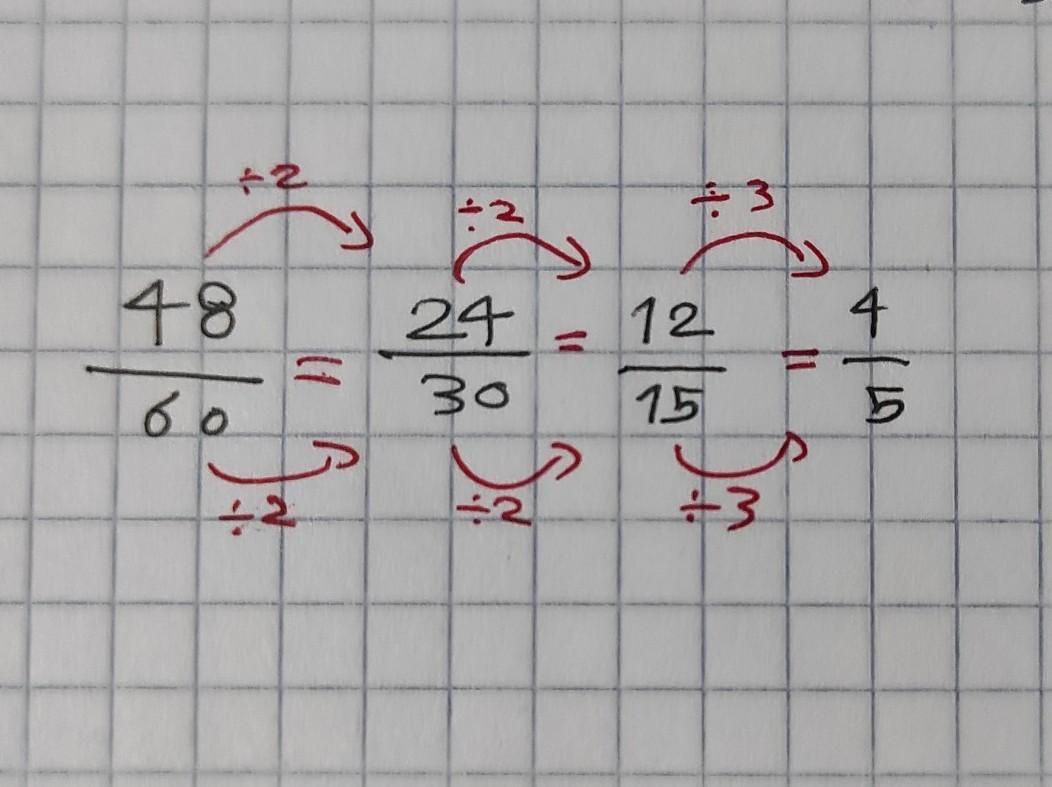 ÷2 ÷2 ÷3
48/60 = 24/30 = 12/15 = 4/5
÷2 ÷2 ÷3